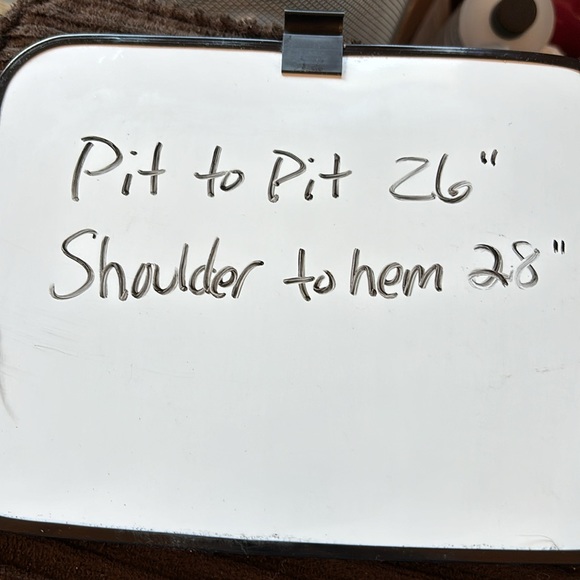 Pit to Pit 26"
Shoulder to hem 28"